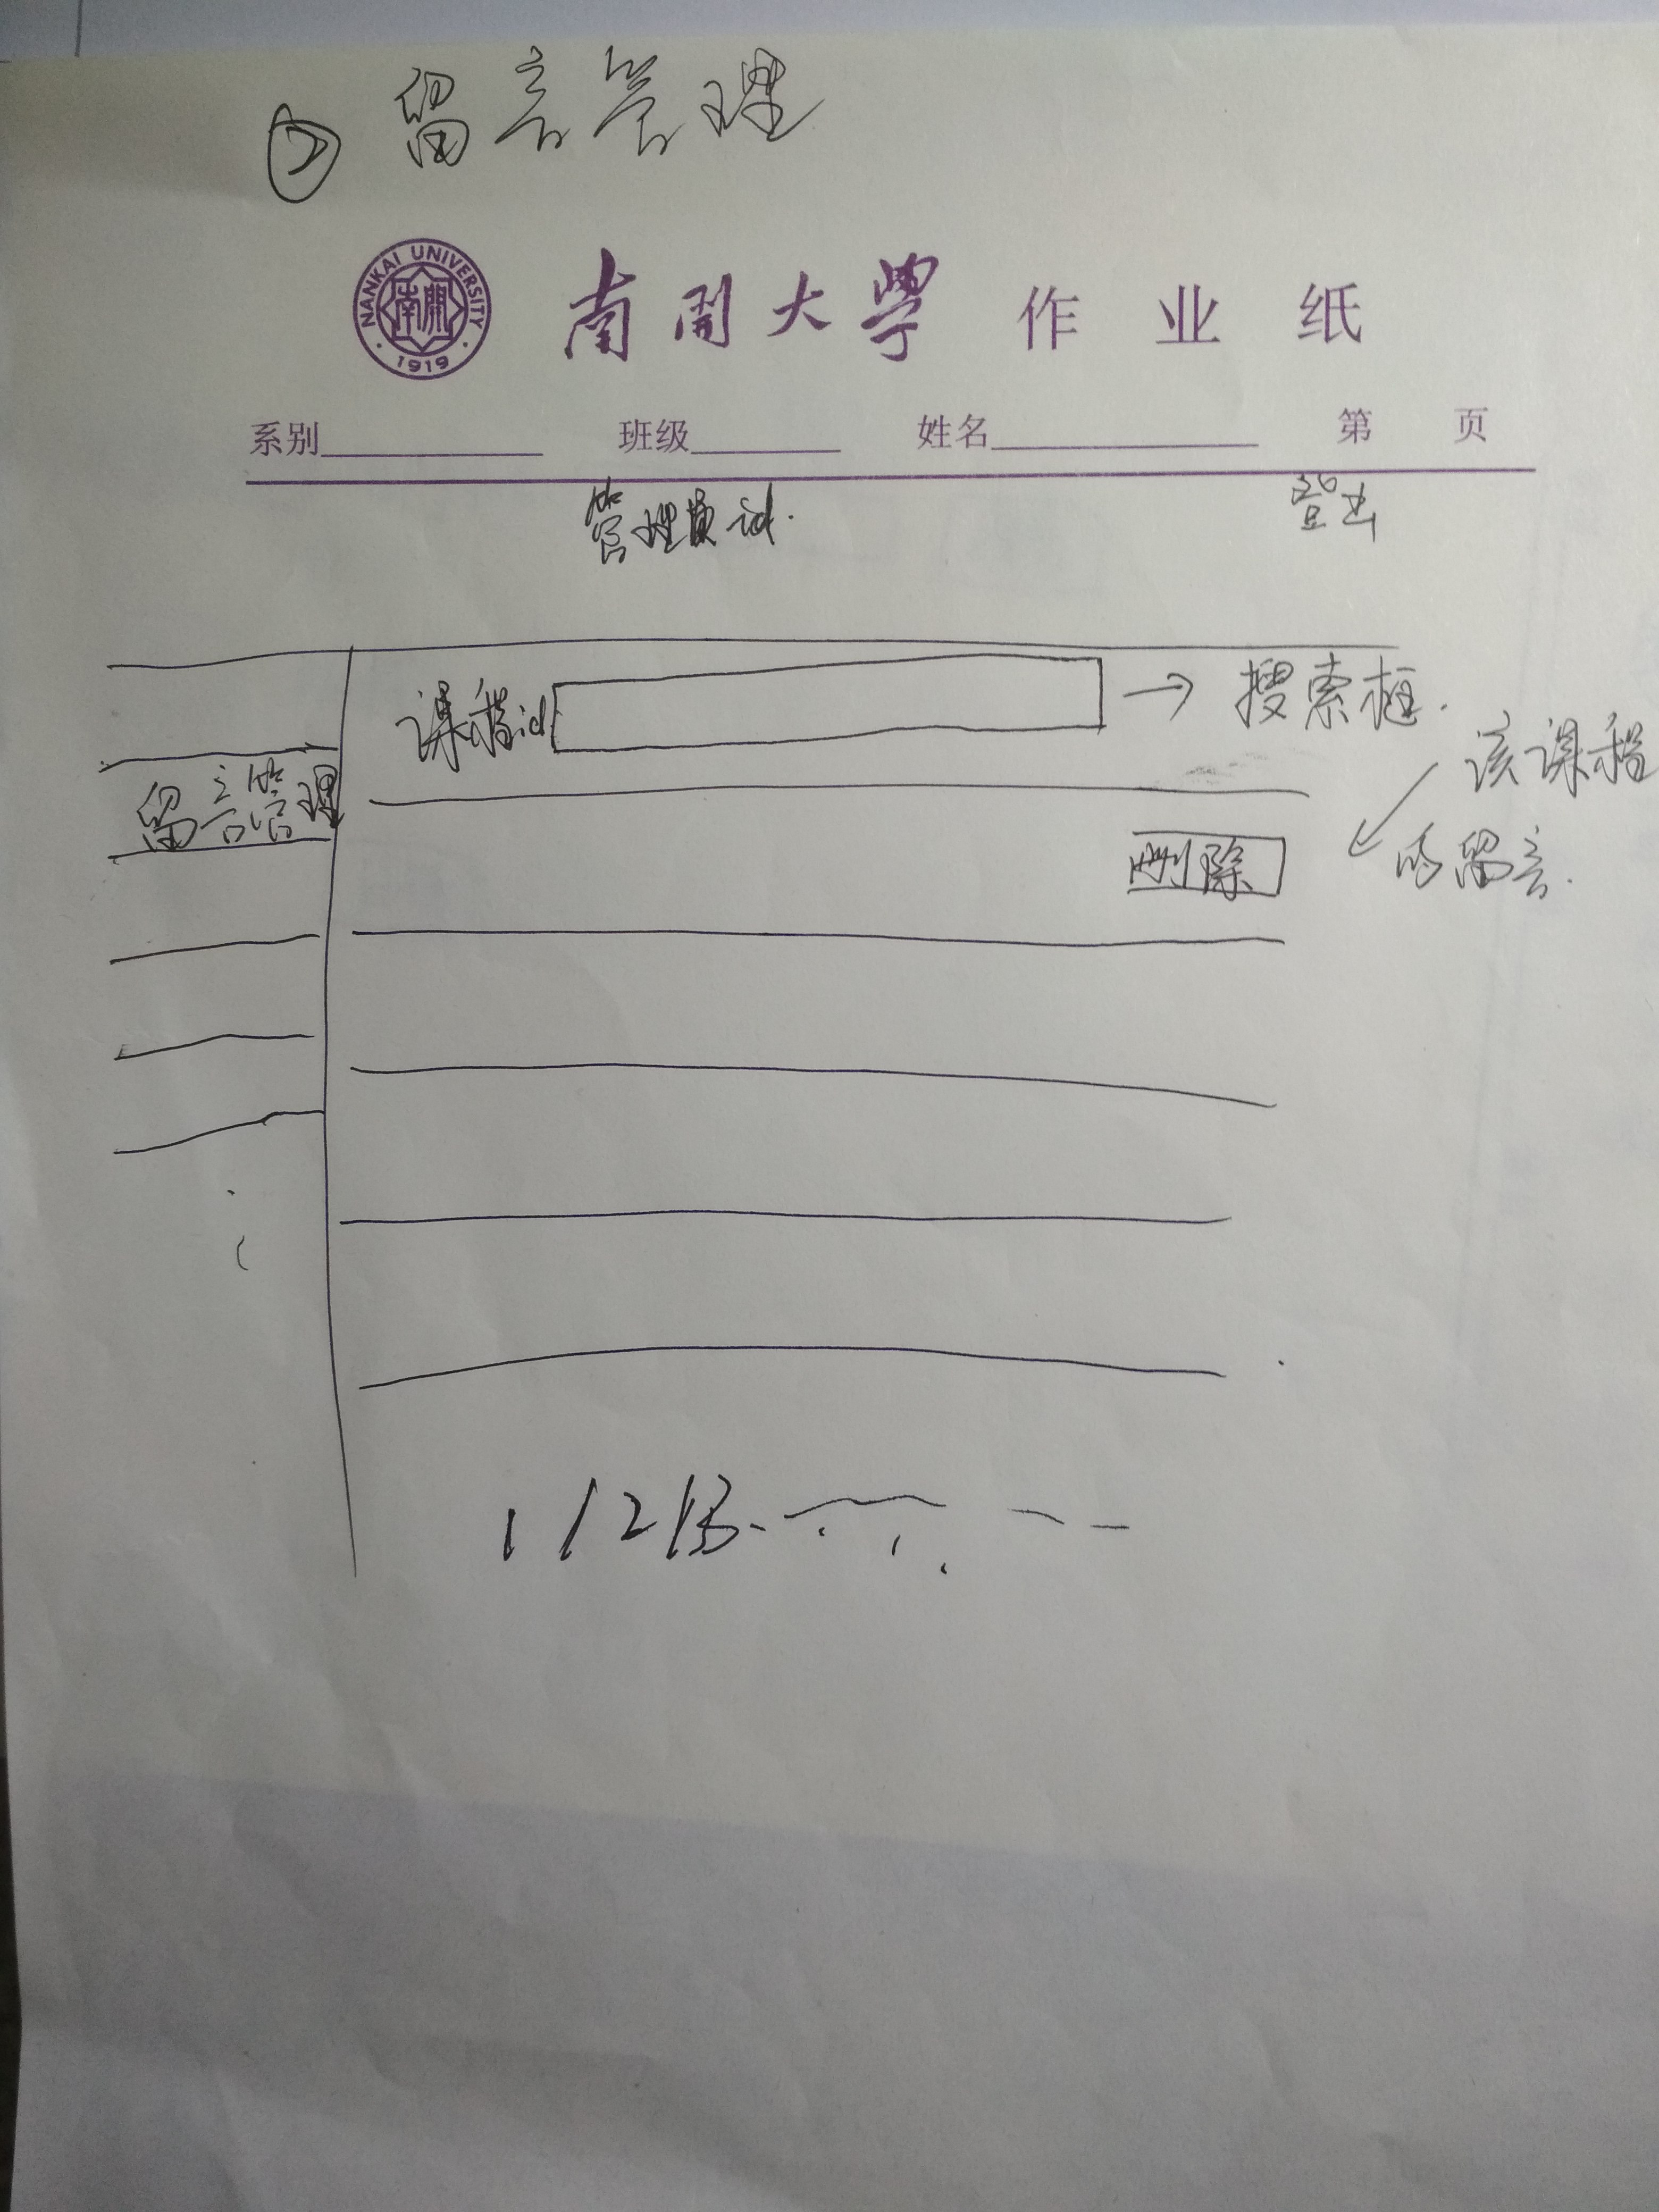 ② 留言管理
NANKAI UNIVERSITY
南開
1919
南開大學 作业纸
系别 班级 姓名 第 页
管理员id. 登出
课程id → 搜索框.
该课程
的留言.
留言管理
删除
1 / 2 / 3